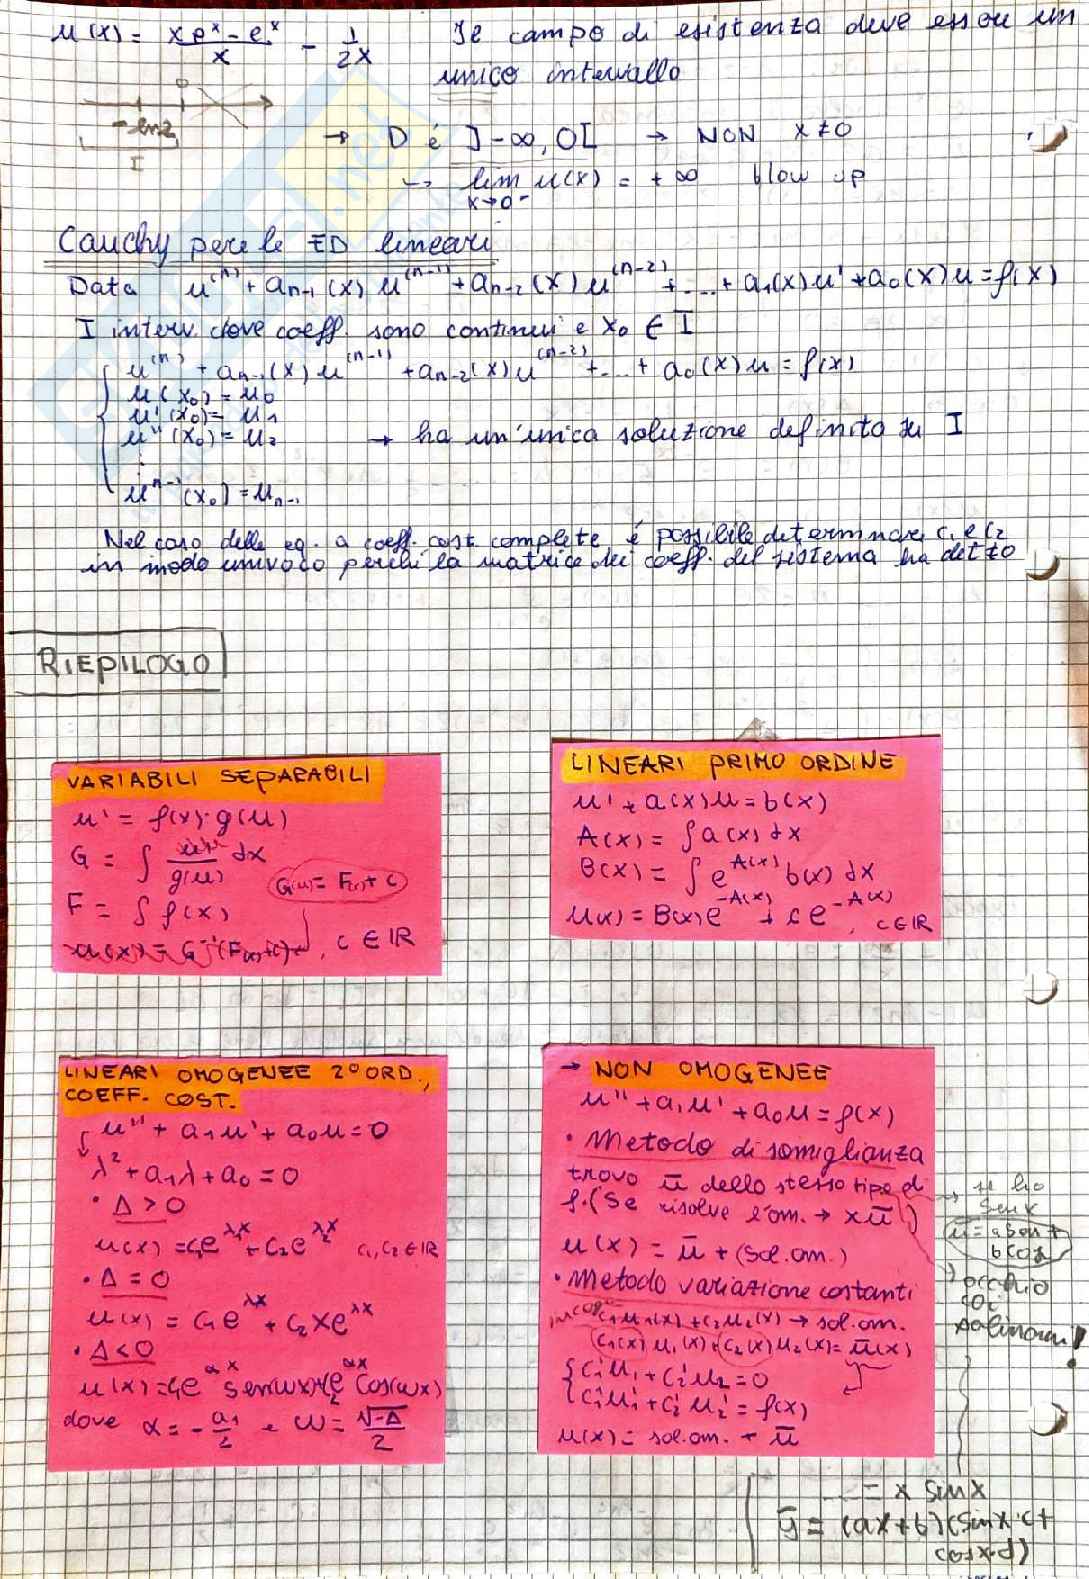 u(x) = xeˣ - eˣ / x - 1/2x Il campo di esistenza deve essere un
unico intervallo
0
-ln2
I
→ D è ]-∞, 0[ → NON x≠0
↪ lim x→0⁻ u(x) = +∞ blow up
Cauchy per le ED lineari
Data u⁽ⁿ⁾ + aₙ₋₁(x) u⁽ⁿ⁻¹⁾ + aₙ₋₂(x) u⁽ⁿ⁻²⁾ + .... + a₁(x)u' + a₀(x)u = f(x)
I interv. dove coeff. sono continui e x₀ ∈ I
u⁽ⁿ⁾ + aₙ₋₁(x) u⁽ⁿ⁻¹⁾ + aₙ₋₂(x) u⁽ⁿ⁻²⁾ + ... + a₀(x)u = f(x)
u(x₀) = u₀
u'(x₀) = u₁
u''(x₀) = u₂ → ha un'unica soluzione definita su I
⋮
uⁿ⁻¹(x₀) = uₙ₋₁
Nel caso delle eq. a coeff. cost. complete è possibile determinare c₁ e c₂
in modo univoco perché la matrice dei coeff. del sistema ha det ≠0
RIEPILOGO
VARIABILI SEPARABILI
u' = f(x)·g(u)
G = ∫ /g(u) dx
G(u) = F(x) + c
F = ∫ f(x)
u(x) = G⁻¹(F(x)+c) , c ∈ IR
LINEARI PRIMO ORDINE
u' + a(x)u = b(x)
A(x) = ∫ a(x) dx
B(x) = ∫ e^A(x) b(x) dx
u(x) = B(x) e^-A(x) + c e^-A(x) , c ∈ IR
LINEARI OMOGENEE 2° ORD.,
COEFF. COST.
u'' + a₁u' + a₀u = 0
λ² + a₁λ + a₀ = 0
• Δ > 0
u(x) = c₁e^λx + c₂e^λ₂x c₁, c₂ ∈ IR
• Δ = 0
u(x) = c₁e^λx + c₂xe^λx
• Δ < 0
u(x) = c₁e^αx sen(ωx) + c₂e^αx cos(ωx)
dove α = -a₁/2 e ω = √-Δ/2
→ NON OMOGENEE
u'' + a₁u' + a₀u = f(x)
• Metodo di somiglianza
trovo ū dello stesso tipo di
f. (Se risolve l'om. → xū)
u(x) = ū + (sol. om.)
• Metodo variazione costanti
c₁u₁(x) + c₂u₂(x) → sol. om.
c₁(x) u₁(x) + c₂(x) u₂(x) = ū(x)
c₁'u₁ + c₂'u₂ = 0
c₁'u₁' + c₂'u₂' = f(x)
u(x) = sol. om. + ū
→ se ho
senx
ū = a sen +
b cos
occhio
coi
polinomi!
= x sinx
ȳ = (ax+b)(sinx·c+
cosx·d)